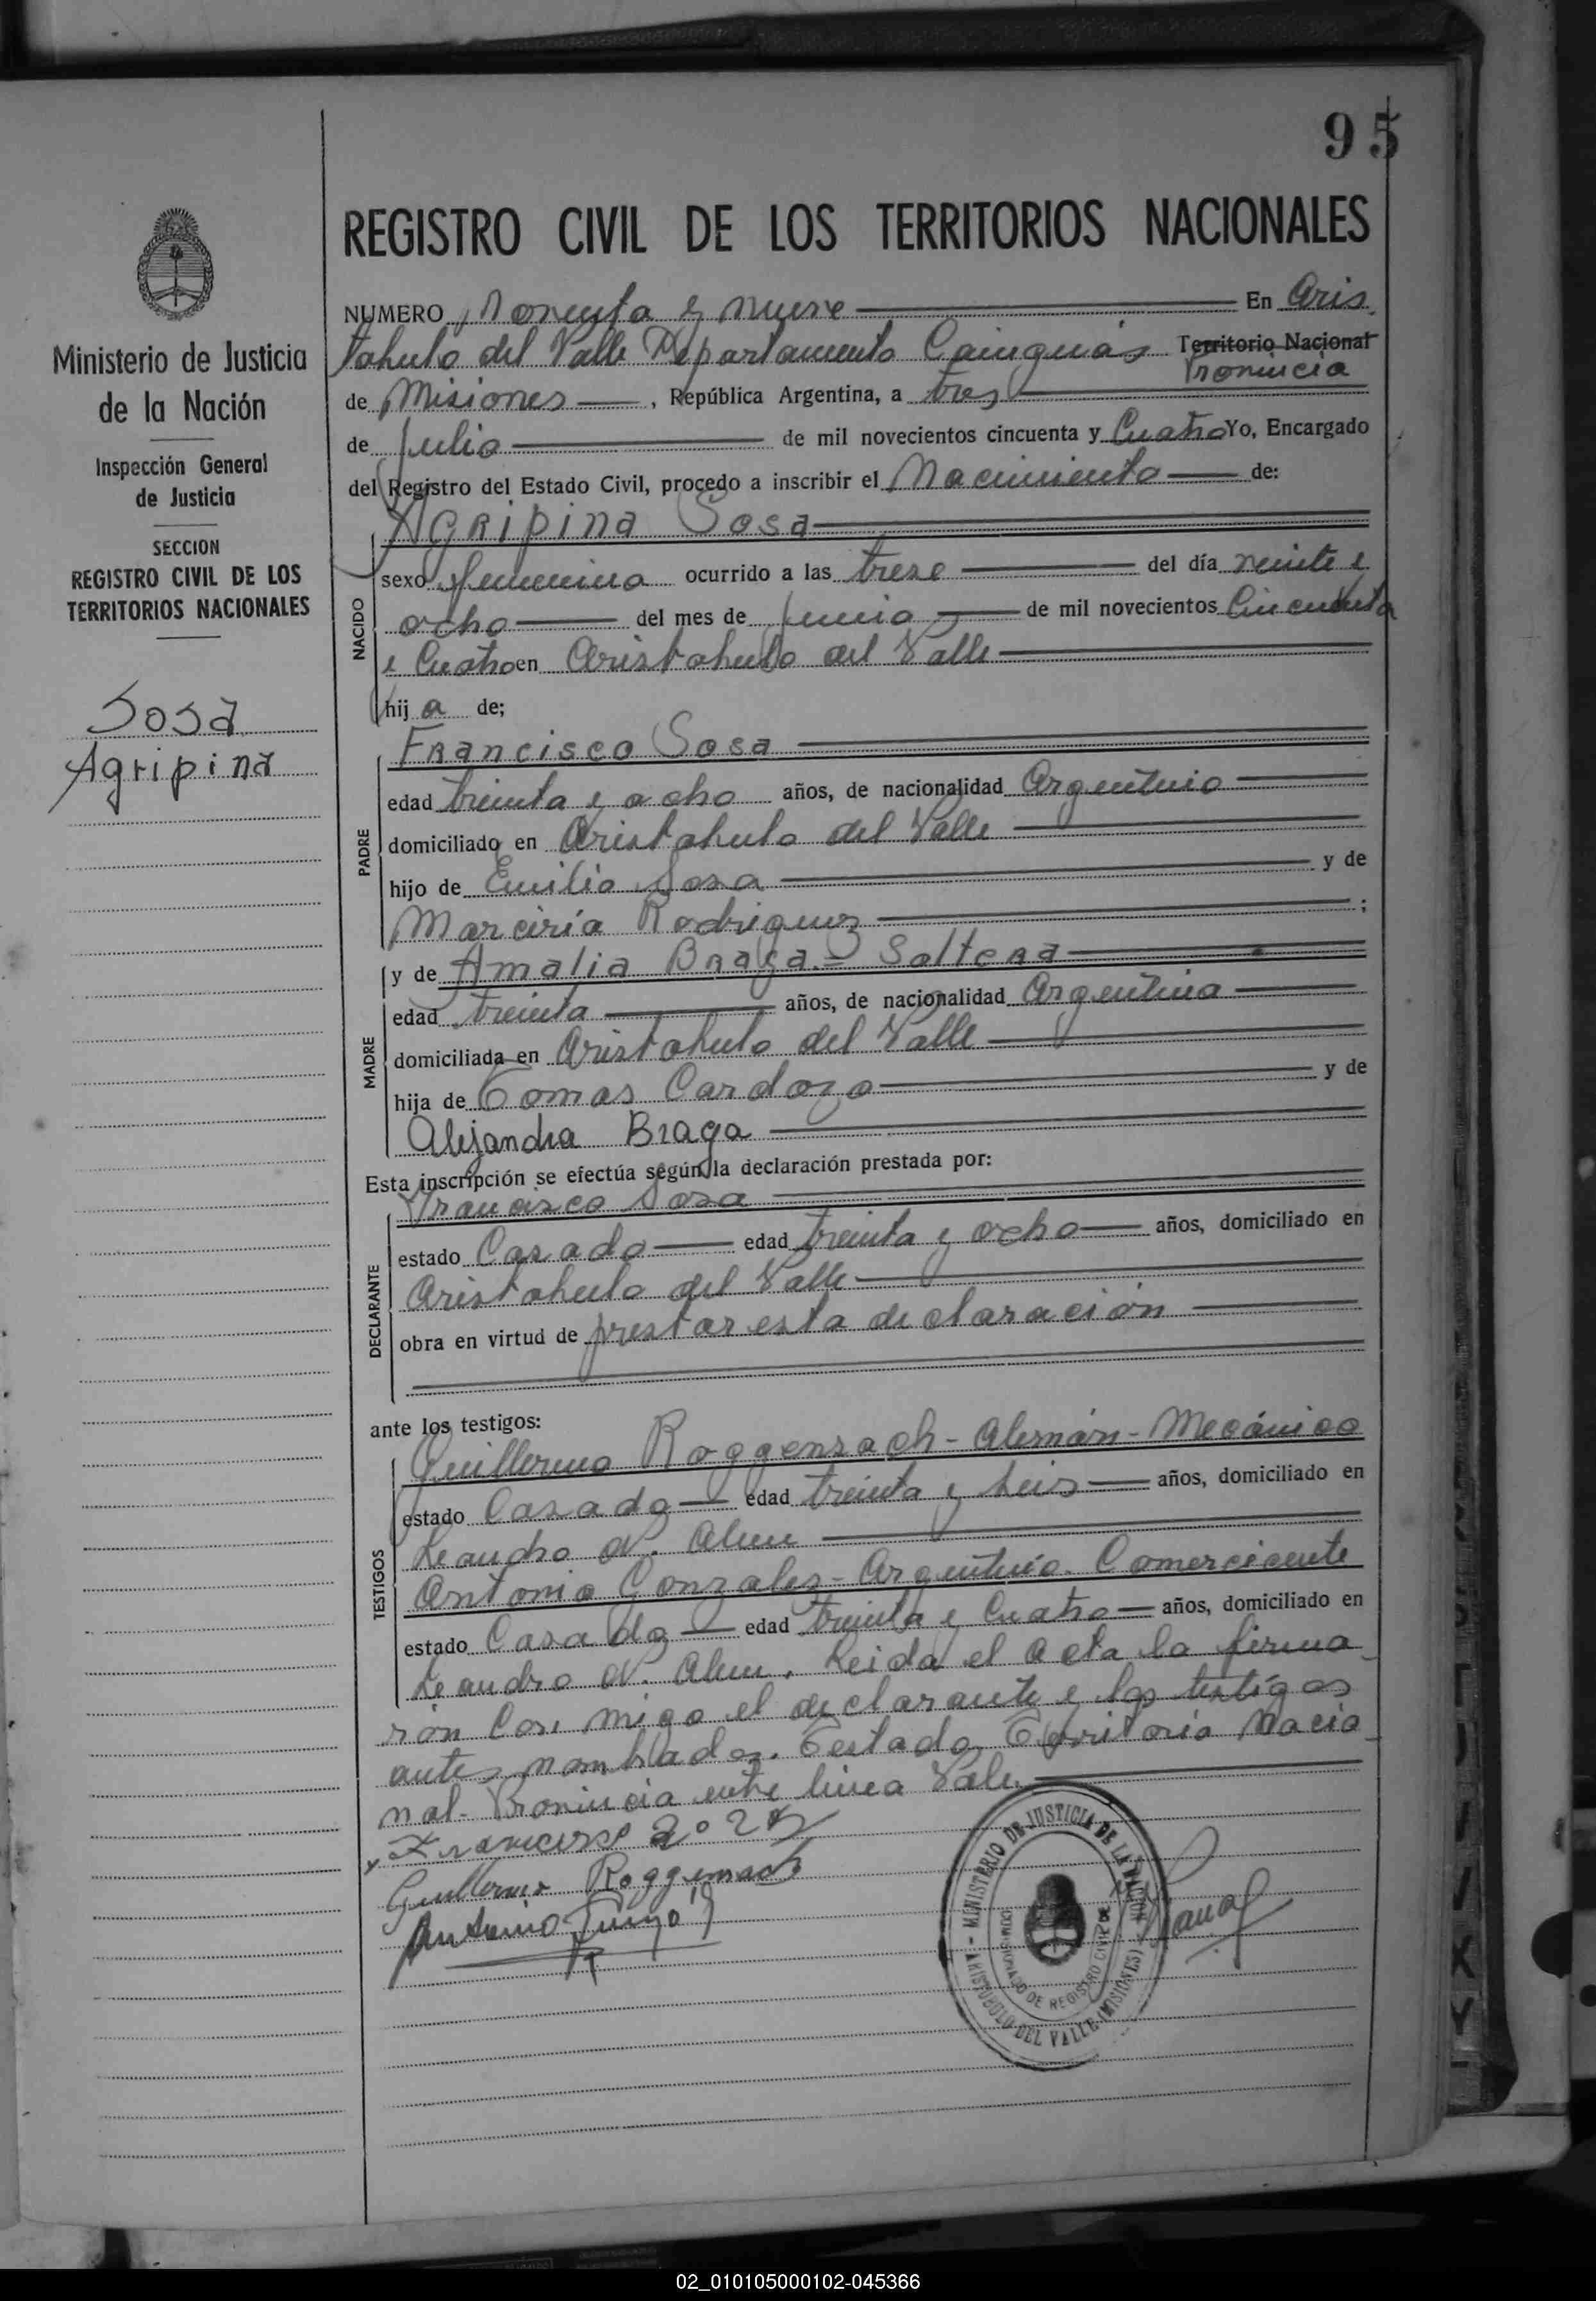 95
REGISTRO CIVIL DE LOS TERRITORIOS NACIONALES
Ministerio de Justicia
de la Nación
Inspección General
de Justicia
SECCION
REGISTRO CIVIL DE LOS
TERRITORIOS NACIONALES
Sosa
Agripina
NUMERO Noventa y nueve En Aris
tobulo del Valle Departamento Cainguás Territorio Nacional
Provincia
de Misiones, República Argentina, a tres
de Julio de mil novecientos cincuenta y Cuatro Yo, Encargado
del Registro del Estado Civil, procedo a inscribir el Nacimiento de:
Agripina Sosa
NACIDO
sexo femenino ocurrido a las trese del día veinte y
ocho del mes de Junio de mil novecientos Cincuenta
y Cuatro en Aristobulo del Valle
hij a de;
Francisco Sosa
PADRE
edad treinta y ocho años, de nacionalidad Argentino
domiciliado en Aristobulo del Valle
hijo de Emilio Sosa y de
Marciria Rodriguez ;
y de Amalia Braga.- Soltera
MADRE
edad treinta años, de nacionalidad Argentina
domiciliada en Aristobulo del Valle
hija de Tomas Cardozo y de
Alejandra Braga
Esta inscripción se efectúa según la declaración prestada por:
Francisco Sosa
DECLARANTE
estado Casado edad treinta y ocho años, domiciliado en
Aristobulo del Valle
obra en virtud de prestar esta declaración
ante los testigos:
TESTIGOS
Guillermo Roggensach - Alemán - Mecánico
estado Casado edad treinta y seis años, domiciliado en
Leandro N. Alem
Antonio Gonzalez - Argentino. Comerciente
estado Casado edad treinta y Cuatro años, domiciliado en
Leandro N. Alem. Leida el acta la firma
ron Con migo el declarante y los testigos
antes nombrados. Testado Territorio Nacio
nal - Provincia entre linea Vale.
Guillermo
Antonio
MINISTERIO DE JUSTICIA DE LA NACION
DE REGISTRO CIVIL DE
ARISTOBULO DEL VALLE (MISIONES)
02_010105000102-045366